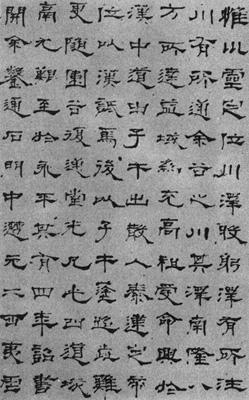 惟巛靈定位川澤股躬澤有所注
川有所通余谷之川其澤南隆八
方所達益域為充高祖受命興於
漢中道由子午出散入秦建定帝
位以漢詆焉後以子午塗路歰難
更隨圍谷復通堂光凡此四道垓
鬲尤艱至於永平其有四年詔書
開余鑿通石門中遭元二西夷虐